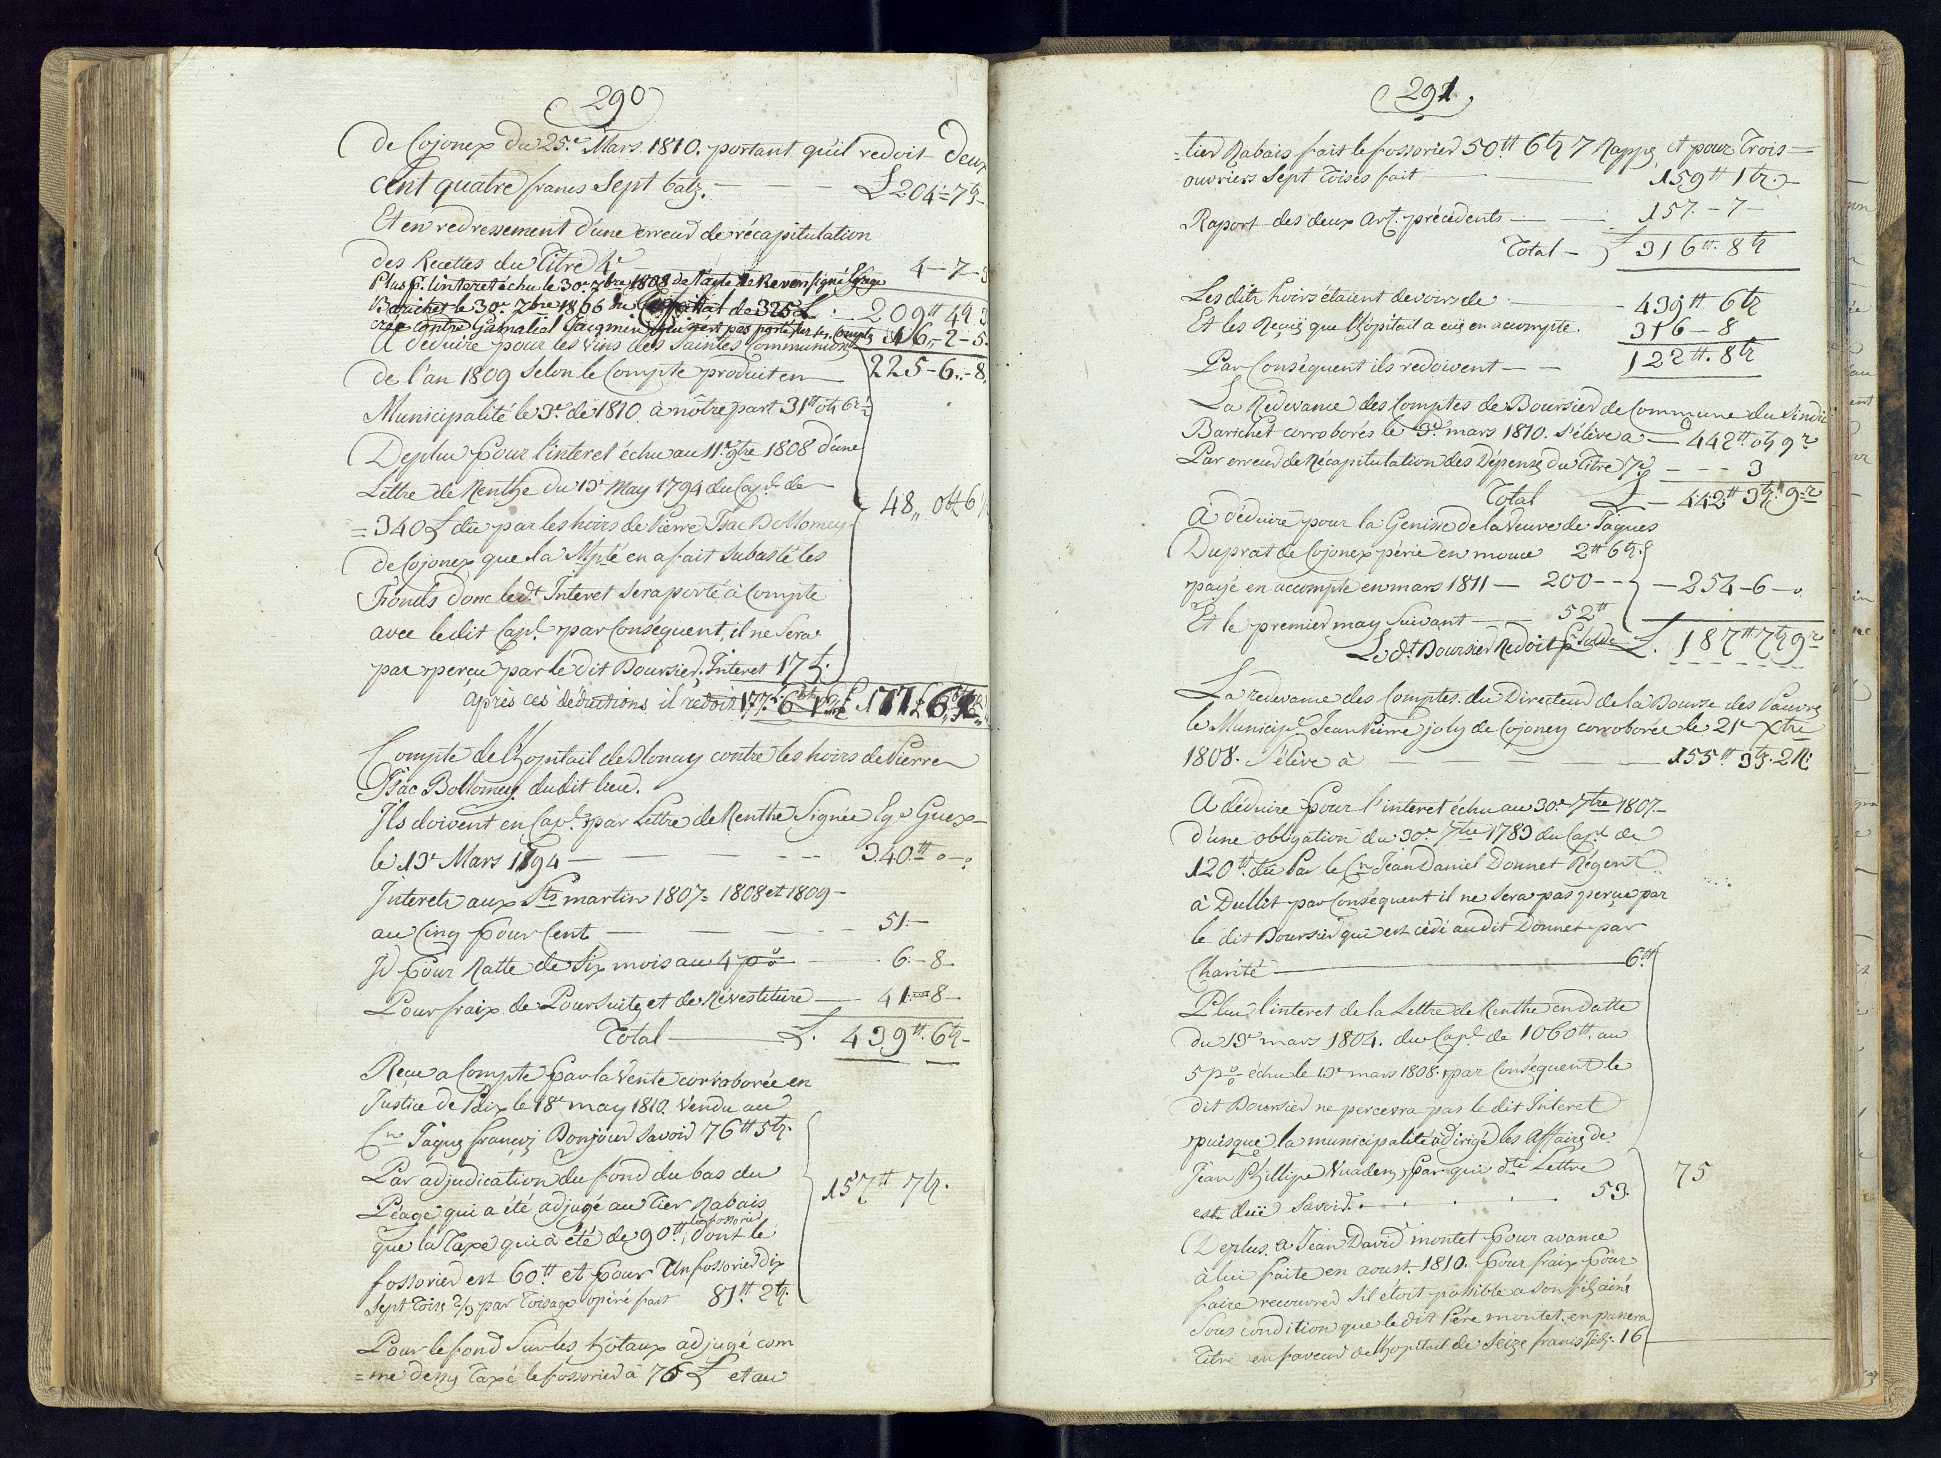 290
de Cojonex du 25.e Mars 1810. portant qu'il redoit deux
cent quatre francs Sept batz. — — — £ 204 = 7 -
Et en redressement d'une erreur de récapitulation
des Recettes du Titre 4e 4 — 7 - 3
Plus p. l'interet échu le 30.e 7bre 1808 de l'acte de Revers signé
Barichet le 30.e 7bre 1806 du Capital de 325 £ 209 tt 4 tz 3
crée contre Gamaliel qui n'est pas porté sur Compte 16,, - 2 - 5
A déduire pour les Vins des Saintes Communions
de l'an 1809 Selon le Compte produit en 225 - 6. - 8.
Municipalité le 3.e de 1810 à nôtre part 31 tt
De plus pour l'interet échu au 11.e 9bre 1808 d'une
Lettre de Renthe du 13e May 1794 du Cap.l de
= 340 £ due par les hoirs de Pierre Isac Bollomey 48,,
de Cojonex que la M.pté en a fait subasté les
Fonds donc led.t Interet sera porté à Compte
avec le dit Cap.l par Conséquent, il ne Sera
pas perçu par le dit Boursier, Interet 17
après ces déductions il redoit 177.
Compte de l'hopitail de Blonay contre les hoirs de Pierre
Isac Bollomey dudit lieu.
Ils doivent en Cap.l par Lettre de Renthe Signée Guex —
le 13e Mars 1794 — — — 340 tt 0 - 0
Interets aux Sts martin 1807 = 1808 et 1809 —
au Cinq pour Cent — — — 51. —
Id pour Ratte de Six mois au 4 p% — 6. - 8.
Pour fraix de Poursuite et de Révestiture — 41. - 8 —
Total — £. 439 tt. 6 tz -
Reçu a Compte par la Vente corroborée en
Justice de Paix le 18e may 1810. Vendu au
Cn Jaques françois Bonjour savoir 76 tt 5 tz.
Par adjudication du fond du bas du
Péage qui a été adjugé au Tier Rabais 157 tt 7 tz.
que la Taxe qui a été de 90 tt le fossorier, dont le
fossorier est 60 tt et pour Un fossorier dix
Sept Toise 2/3 par Toisage opéré fait 81 tt. 2 tz.
Pour le fond Sur les hôtaux adjugé com
= me dessus Taxé le fossorier à 76 £ et au
291
= tier Rabais fait le fossorier 50 tt 6 tz 7 Rappes et pour Trois —
ouvriers Sept Toises fait — — 159 tt 1 tz
Raport des deux art. précédents — — 157. - 7 -
Total — £ 316 tt. 8 tz
Les dits hoirs étaient devoirs de — 439 tt 6 tz
Et les Reçüs que l'hôpitail a eüs en accompte. 316 — 8
Par Conséquent ils redoivent — — 122 tt. 8 tz
La Redevance des Comptes de Boursier de Commune du Sindic
Barichet corroborés le 3e mars 1810. S'élève a — 442 tt 0 tz 9 r
Par erreur de Récapitulation des Dépenses du Titre 7e — — - 3
Total £ — 442 tt 3 tz. 9 r
A déduire pour la Genisse de la Veuve de Jaques
Duprat de Cojonex périe en 2 tt 6 tz.
payé en accompte en mars 1811 — 200 - - — 254 - 6 — 0
Et le premier may Suivant — 52 tt
Led.t Boursier Redoit p.r Solde £. 187 tt 7 tz 9 r
La redevance des Comptes du Directeur de la Bourse des Pauvres
le Municip.l Jean Pierre joly de Cojonex corroborée le 21e Xbre
1808. S'élève à — — — — 155 tt 3 tz. 2 R.
A déduire pour l'interet échu au 30.e 7bre 1807 —
d'une obligation du 30.e 7bre 1783 du Cap.l de
120 tt. du Par le Cn Jean Daniel Donnet Régent
à Dullit par Conséquent il ne Sera pas perçue par
le dit Boursier qui est cédé audit Donnet par
Charité — 6. tt
Plus l'interet de la Lettre de Renthe en datte
du 13e mars 1804. du Cap.l de 1060 tt. au
5 p% échu le 13e mars 1808. par Conséquent le
dit Boursier ne percevra pas le dit Interet
puisque la municipalité a dirigé les Affaires de
Jean Phillipe Vuadens par qui d.te Lettre 75
est düe Savoir . . . . 53.
De plus, a Jean David montet pour avance
à lui faite en aoust 1810. pour fraix pour
faire recouvrer s'il étoit possible a son fils ainé
Sous condition que le dit Père montet en passera
Titre en faveur de l'hopitail de Seize francs 16